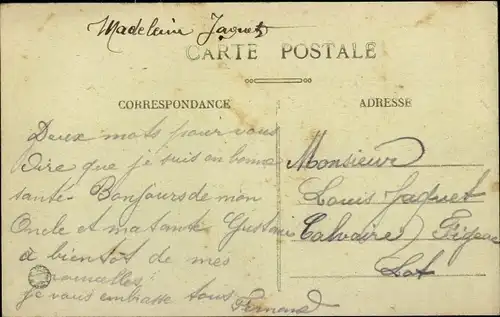 Madeleine Jaquet
CARTE POSTALE
CORRESPONDANCE
ADRESSE
Deux mots pour vous
dire que je suis en bonne
santé - Bonjours de mon
Oncle et ma tante Gustave
à bientôt de mes
nouvelles
je vous embrasse tous
Fernand
Monsieur
Louis Jaquet
Calvaire Figeac
Lot